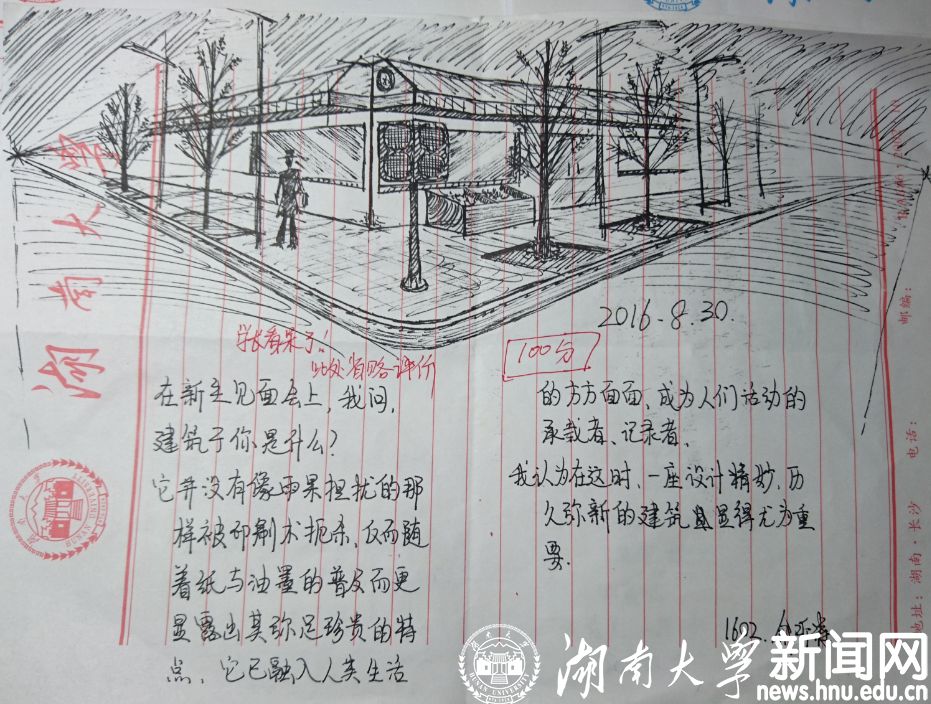 湖南大学
2016.8.30.
学长看呆了!
此处省略评价
100分
在新生见面会上,我问,
建筑于你是什么?
它并没有像雨果担忧的那
样被印刷术扼杀、反而随
着纸与油墨的普及而更
显露出其弥足珍贵的特
点、它已融入人类生活
的方方面面、成为人们活动的
承载者、记录者、
我认为在这时,一座设计精妙,历
久弥新的建筑显得尤为重
要.
1602.
地址:湖南·长沙
电话:
邮编:
HUNAN UNIVERSITY
湖南大学新闻网
news.hnu.edu.cn